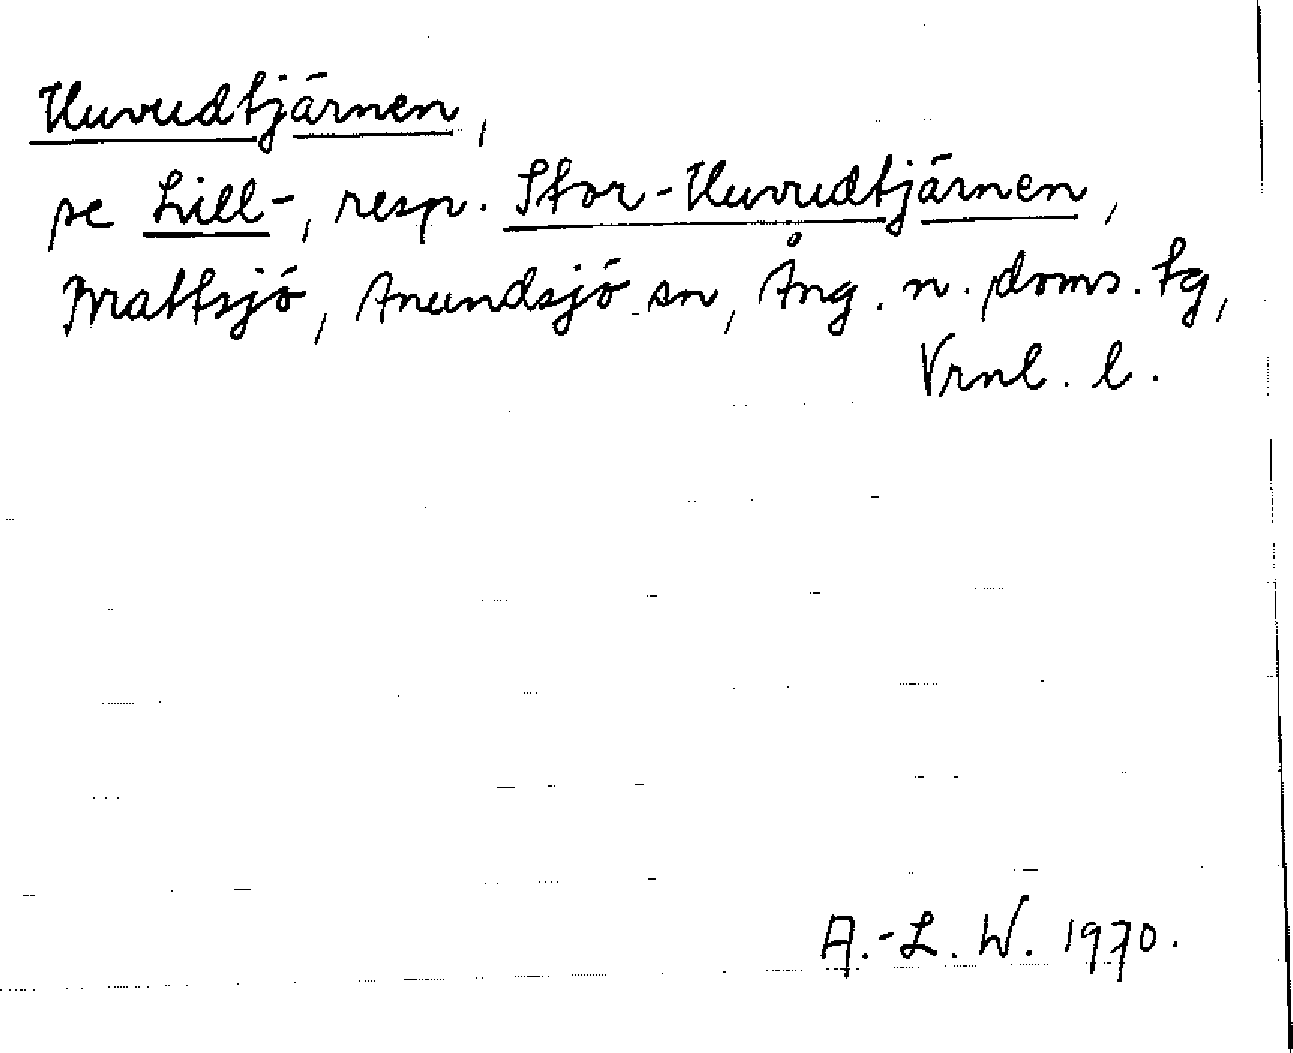 Huvudtjärnen,
se Lill-, resp. Stor-Huvudtjärnen,
Mattsjö, Anundsjö sn, Ång. n. doms. tg,
Vrnl. l.
A.-L. W. 1970.